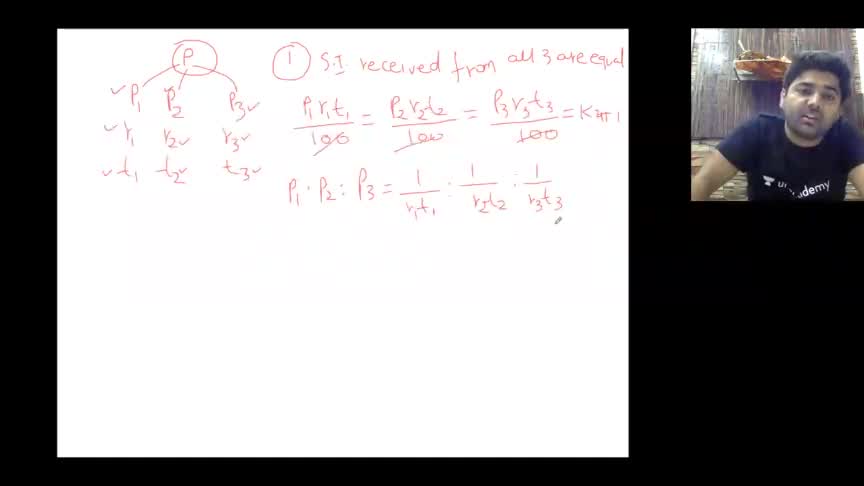 P
P1 P2 P3
r1 r2 r3
t1 t2 t3
1 S.I received from all 3 are equal
P1r1t1/100 = P2r2t2/100 = P3r3t3/100 =
P1 : P2 : P3 = 1/r1t1 : 1/r2t2 : 1/r3t3